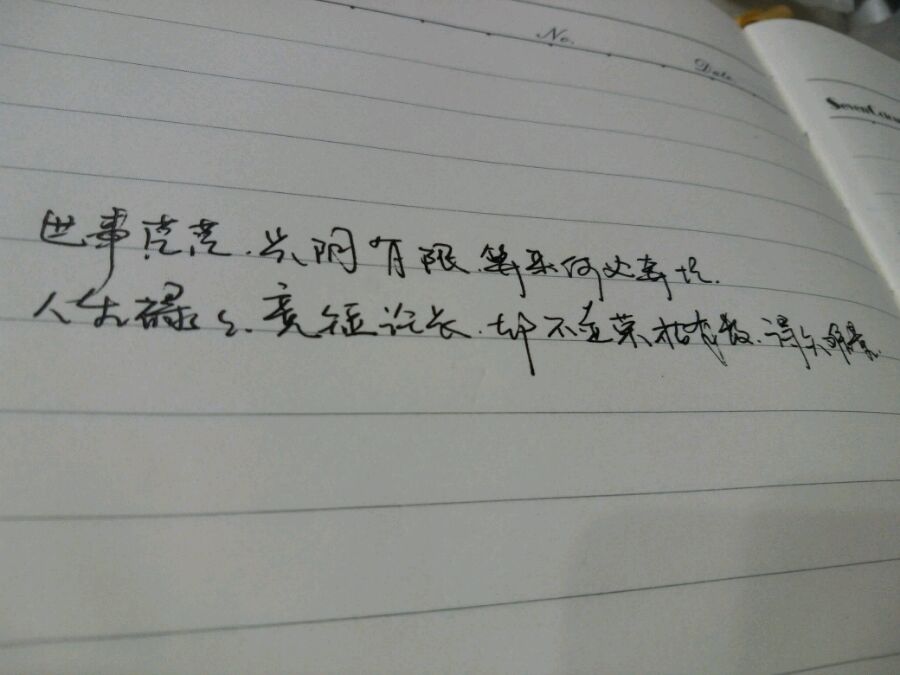 No.
Date
世事茫茫.光阴有限.算来何必奔忙.
人生碌々.竞短论长.却不道荣枯有数.得失难量.